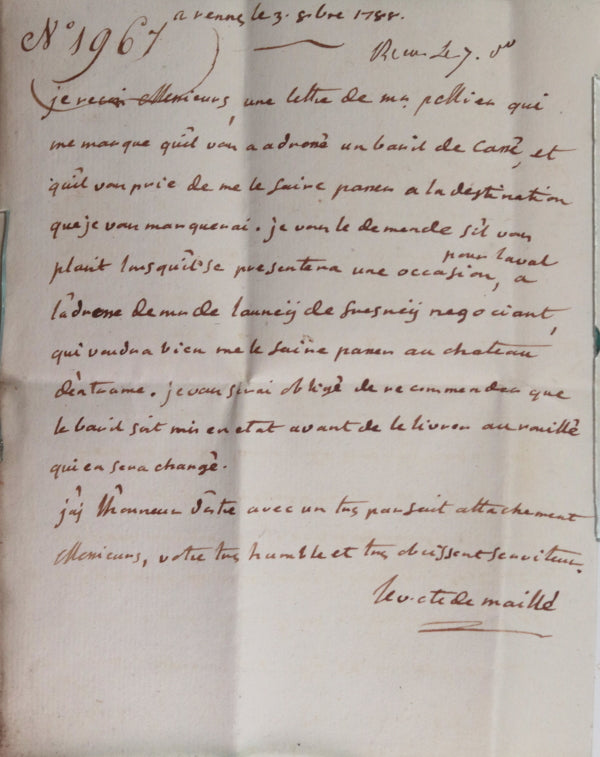 a rennes le 3. 8bre 1788.
N° 1967
Recu Le 7. do
je recois Messieurs, une lettre de mr pellieu qui
me marque qu'il vous a adressé un baril de caffé, et
qu'il vous prie de me le faire passer a la destination
que je vous marquerai. je vous le demande s'il vous
plait lorsqu'il se presentera une occasion pour laval, a
l'adresse de mr de launeÿ de fresneÿ negociant,
qui voudra bien me le faire passer au chateau
d'entrame. je vous serai obligé de recommender que
le baril soit mis en etat avant de le livrer au roullié
qui en sera chargé.
j'aj l'honneur d'estre avec un tres parfait attachement
Messieurs, votre tres humble et tres obeissent serviteur.
le v. cte de maillé